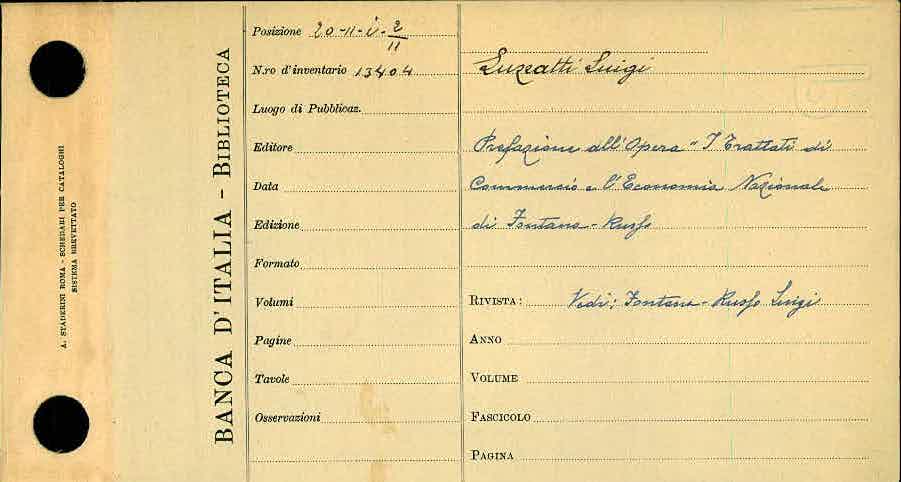 A. STADERINI ROMA - SCHEDARI PER CATALOGHI
SISTEMA BREVETTATO
BANCA D'ITALIA - BIBLIOTECA
Posizione 20-11-i-2
11
N.ro d'inventario 13404
Luogo di Pubblicaz.
Editore
Data
Edizione
Formato
Volumi
Pagine
Tavole
Osservazioni
Luzzatti Luigi
Prefazione all'Opera "I Trattati di
Commercio e l'Economia Nazionale
di Fontana-Russo
RIVISTA: Vedi: Fontana-Russo Luigi
ANNO
VOLUME
FASCICOLO
PAGINA